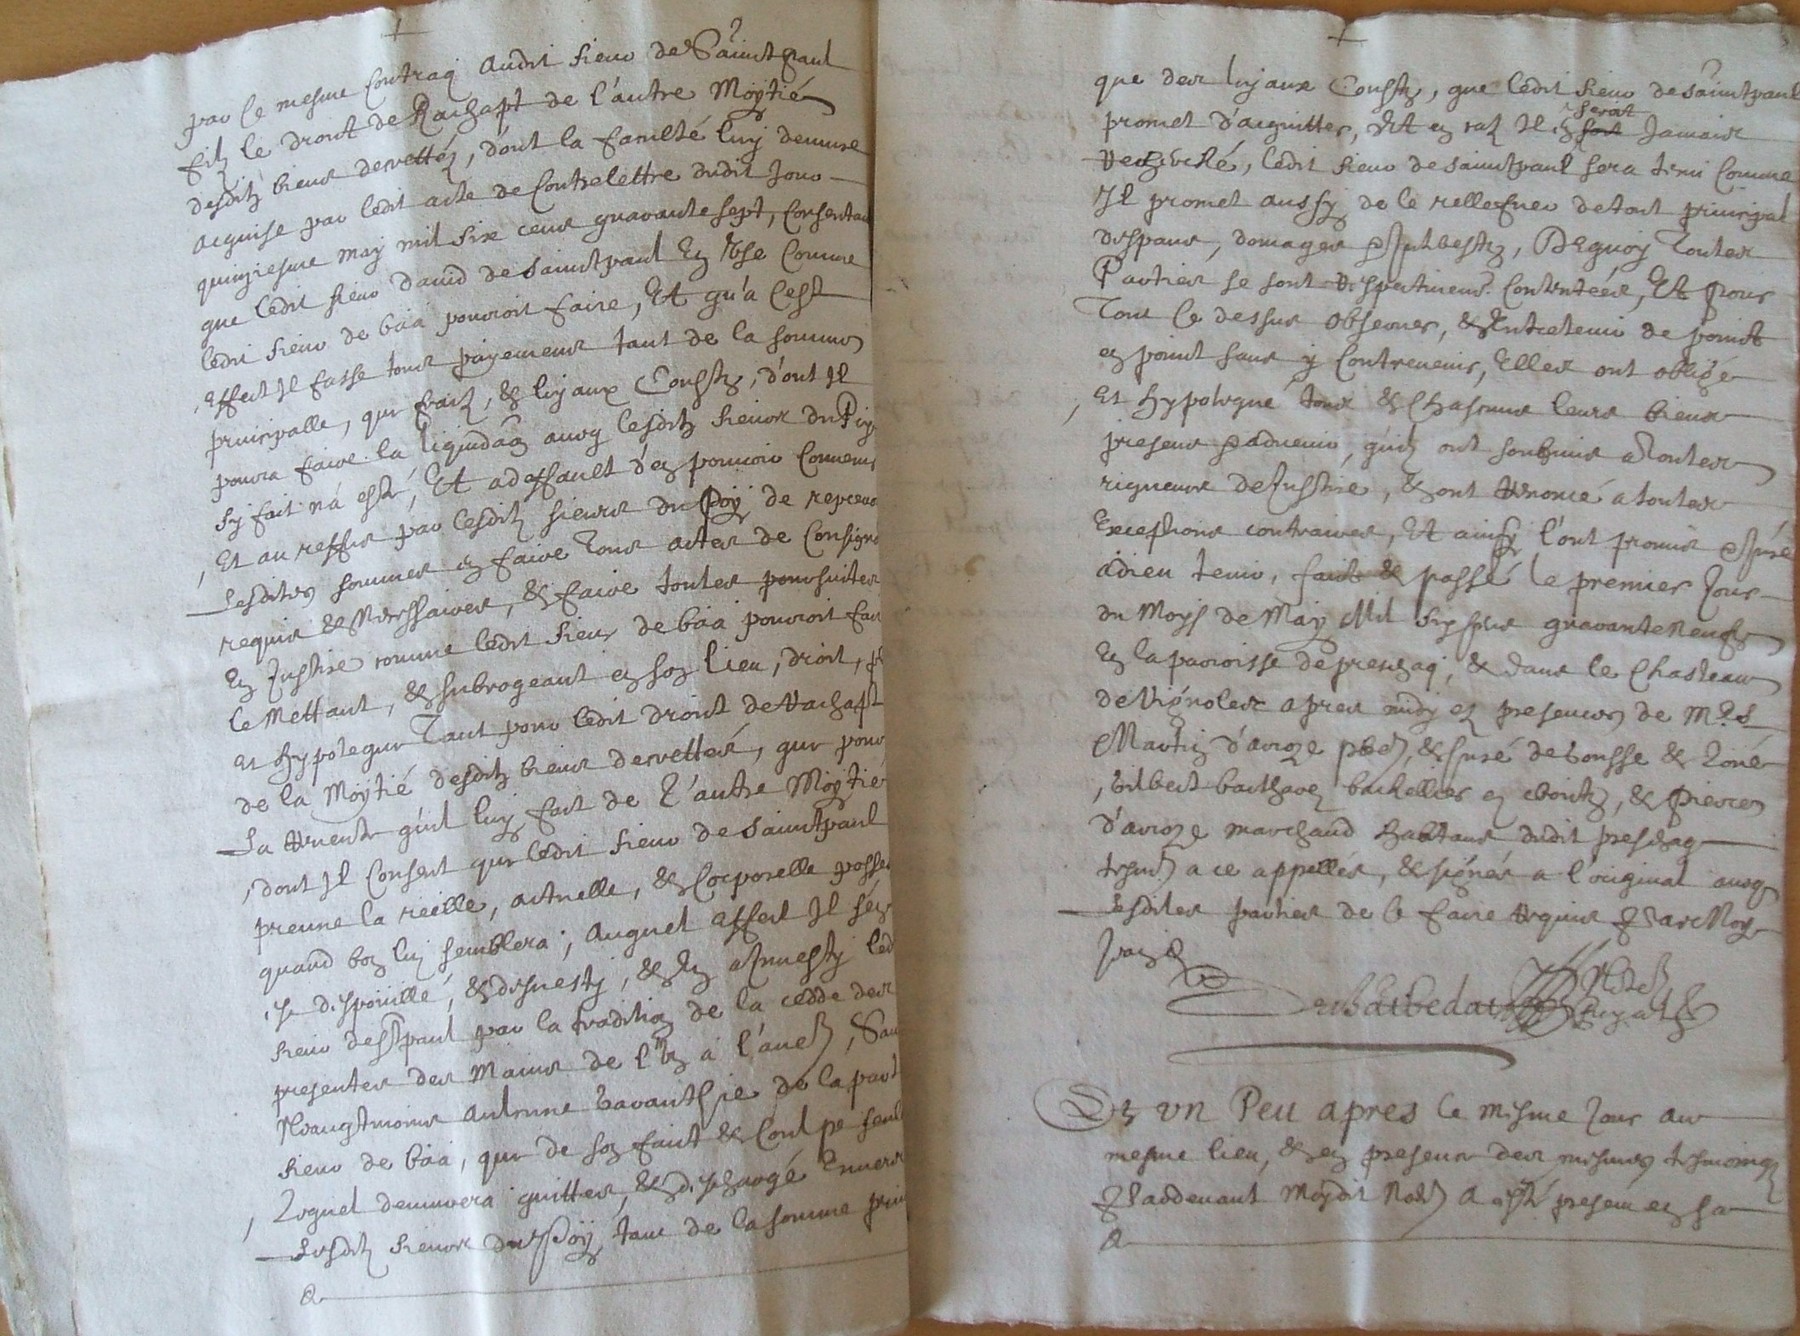 par le mesme Contraq audit sieur de Sainctpaul
filz le droict de Rachapt de l'autre Moytié
desditz biens dervettez, dont la faculté luy demure
acquise par ledit acte de Contrelettre dudit Jour
quinziesme may mil six cens quarante sept, Consentant
que ledit sieur dauid de Sainctpaul En Vse Comme
ledit sieur de baa pouuoit faire, Et qu'a cest
effect Jl fasse tous payemens tant de la somme
principalle, que fraiz, & loyaux Coustz, d'ont Jl
pourra faire la liquidaõn auec lesditz sieurs du Poy
sy fait n'a esté, Et a deffault d'en pouuoir Conuenir
Et au reffus par lesditz sieurs du Poÿ de repceuoir
Lesdites sommes en faire tous actes de Consigna
requis & Necessaires, & faire toutes poursuites
En Justice comme ledit sieur de baa pouuoit faire
le Mettant, & subrogeant en son lieu, droit,
et hypoteque Tant pour ledit droit de rachapt
de la Moytié desditz biens dervettés, que pour
La vente qu'il luy fait de L'autre Moytié
dont Jl Consent que ledit sieur de Sainctpaul
prenne la réelle, actuelle, & Corporelle posses
quand bon luy semblera, auquel effect Jl s'en
est dispouillé, & desuesty, & En a Jnuesty led
sieur de St paul par la tradition de la cedde des
presentes des Mains de l'Vn a l'autre, Sans
Neaugtmoins aulcune Garantie de la part
sieur de baa, que de son faict & Coulpe seul
Loquel demurera quittes, & d'schargé Enuers
Lesditz sieurs du Poÿ, tant de la somme prin
que des loyaux Coustz, que ledit sieur de Sainctpaul
promet d'acquitter, Et en cas Jl en seroit Jamais
recherché, ledit sieur de Sainctpaul sera tenu Comme
Jl promet aussy de le rellesuer de tout principal
despans, domages & Jntherestz, DEquoy Toutes
Parties se sont respectiuemt Contentées, Et pour
Tout Ce dessus obseruer, & Entretenir de poinct
en point sans y Contreuenir, Elles ont obligé
Et hypotequé tous & Chascuns leurs biens
presens & aduenir, qu'ilz ont soubmis a Toutes
rigueurs de Justice, & ont renoncé a toutes
Exceptions contraires, Et ainsy l'ont promis & Juré
a dieu tenir, faict & passé le premier Jour
du Moys de May Mil six cens quarante neuf
En la parroisse de preschaq, & dans le Chasteau
de Vignoles apres midy en presences de Mes
Martin d'aroze pbre, & Curé de Gousse &
Gilbert bachellier en droitz, & Pierre
d'aroze marchand habitans dudit preschaq
tesmᵗ a ce appellés, & signés a l'original auec
Lesdites parties de ce faire requis & Par Moy
Et vn Peu apres le mesme Jour au
mesme lieu, & en presence des mesmes tesmoings
& Pardeuant Moydit Notre A esté present en sa